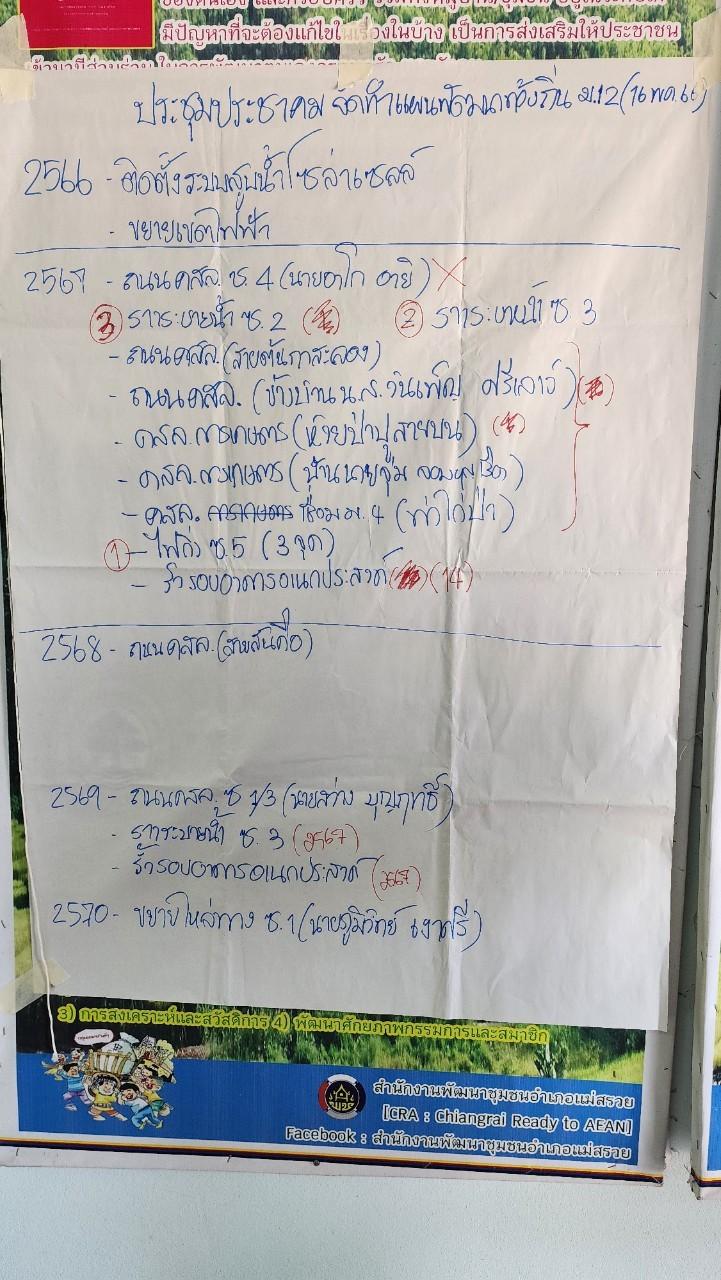 มีปัญหาที่จะต้องแก้ไขในเรื่องในบ้าง เป็นการส่งเสริมให้ประชาชน
ประชุมประชาคม จัดทำแผนพัฒนาท้องถิ่น ม.12 (16 พ.ค. 66)
2566 - ติดตั้งระบบสูบน้ำโซล่าเซลล์
- ขยายเขตไฟฟ้า
2567 - ถนน คสล. ซ.4 (นายอาโก อายิ) X
③ รางระบายน้ำ ซ.2 ② รางระบายน้ำ ซ.3
- ถนน คสล. (สายต้นกาสะลอง)
- ถนน คสล. (ข้างบ้าน น.ส.วันเพ็ญ ศรีเลาว์)
- คสล. การเกษตร (ห้วยป่าปูสายบน)
- คสล. การเกษตร (บ้านนายจุ่ม
- คสล. การเกษตร เชื่อม ม.4 (ท่าไก่ป่า)
① - ไฟกิ่ง ซ.5 (3 จุด)
- รั้วรอบอาคารอเนกประสงค์ (14)
2568 - ถนน คสล. (สายสันกือ)
2569 - ถนน คสล. ซ 1/3 (นายสว่าง บุญฤทธิ์)
- รางระบายน้ำ ซ.3 (2567)
- รั้วรอบอาคารอเนกประสงค์ (2567)
2570 - ขยายไหล่ทาง ซ.1 (นายภูมิวิทย์ เงาศรี)
3) การสงเคราะห์และสวัสดิการ 4) พัฒนาศักยภาพกรรมการและสมาชิก
สำนักงานพัฒนาชุมชนอำเภอแม่สรวย
[CRA : Chiangrai Ready to AEAN]
Facebook : สำนักงานพัฒนาชุมชนอำเภอแม่สรวย